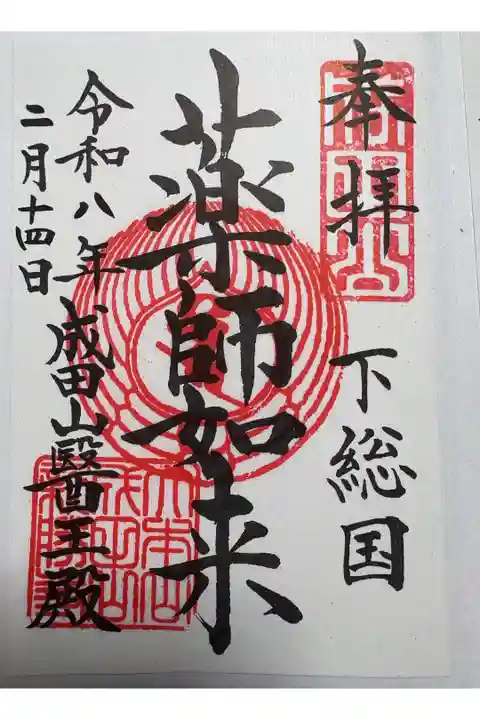 奉拝
下総国
薬師如来
成田山醫王殿
令和八年
二月十四日